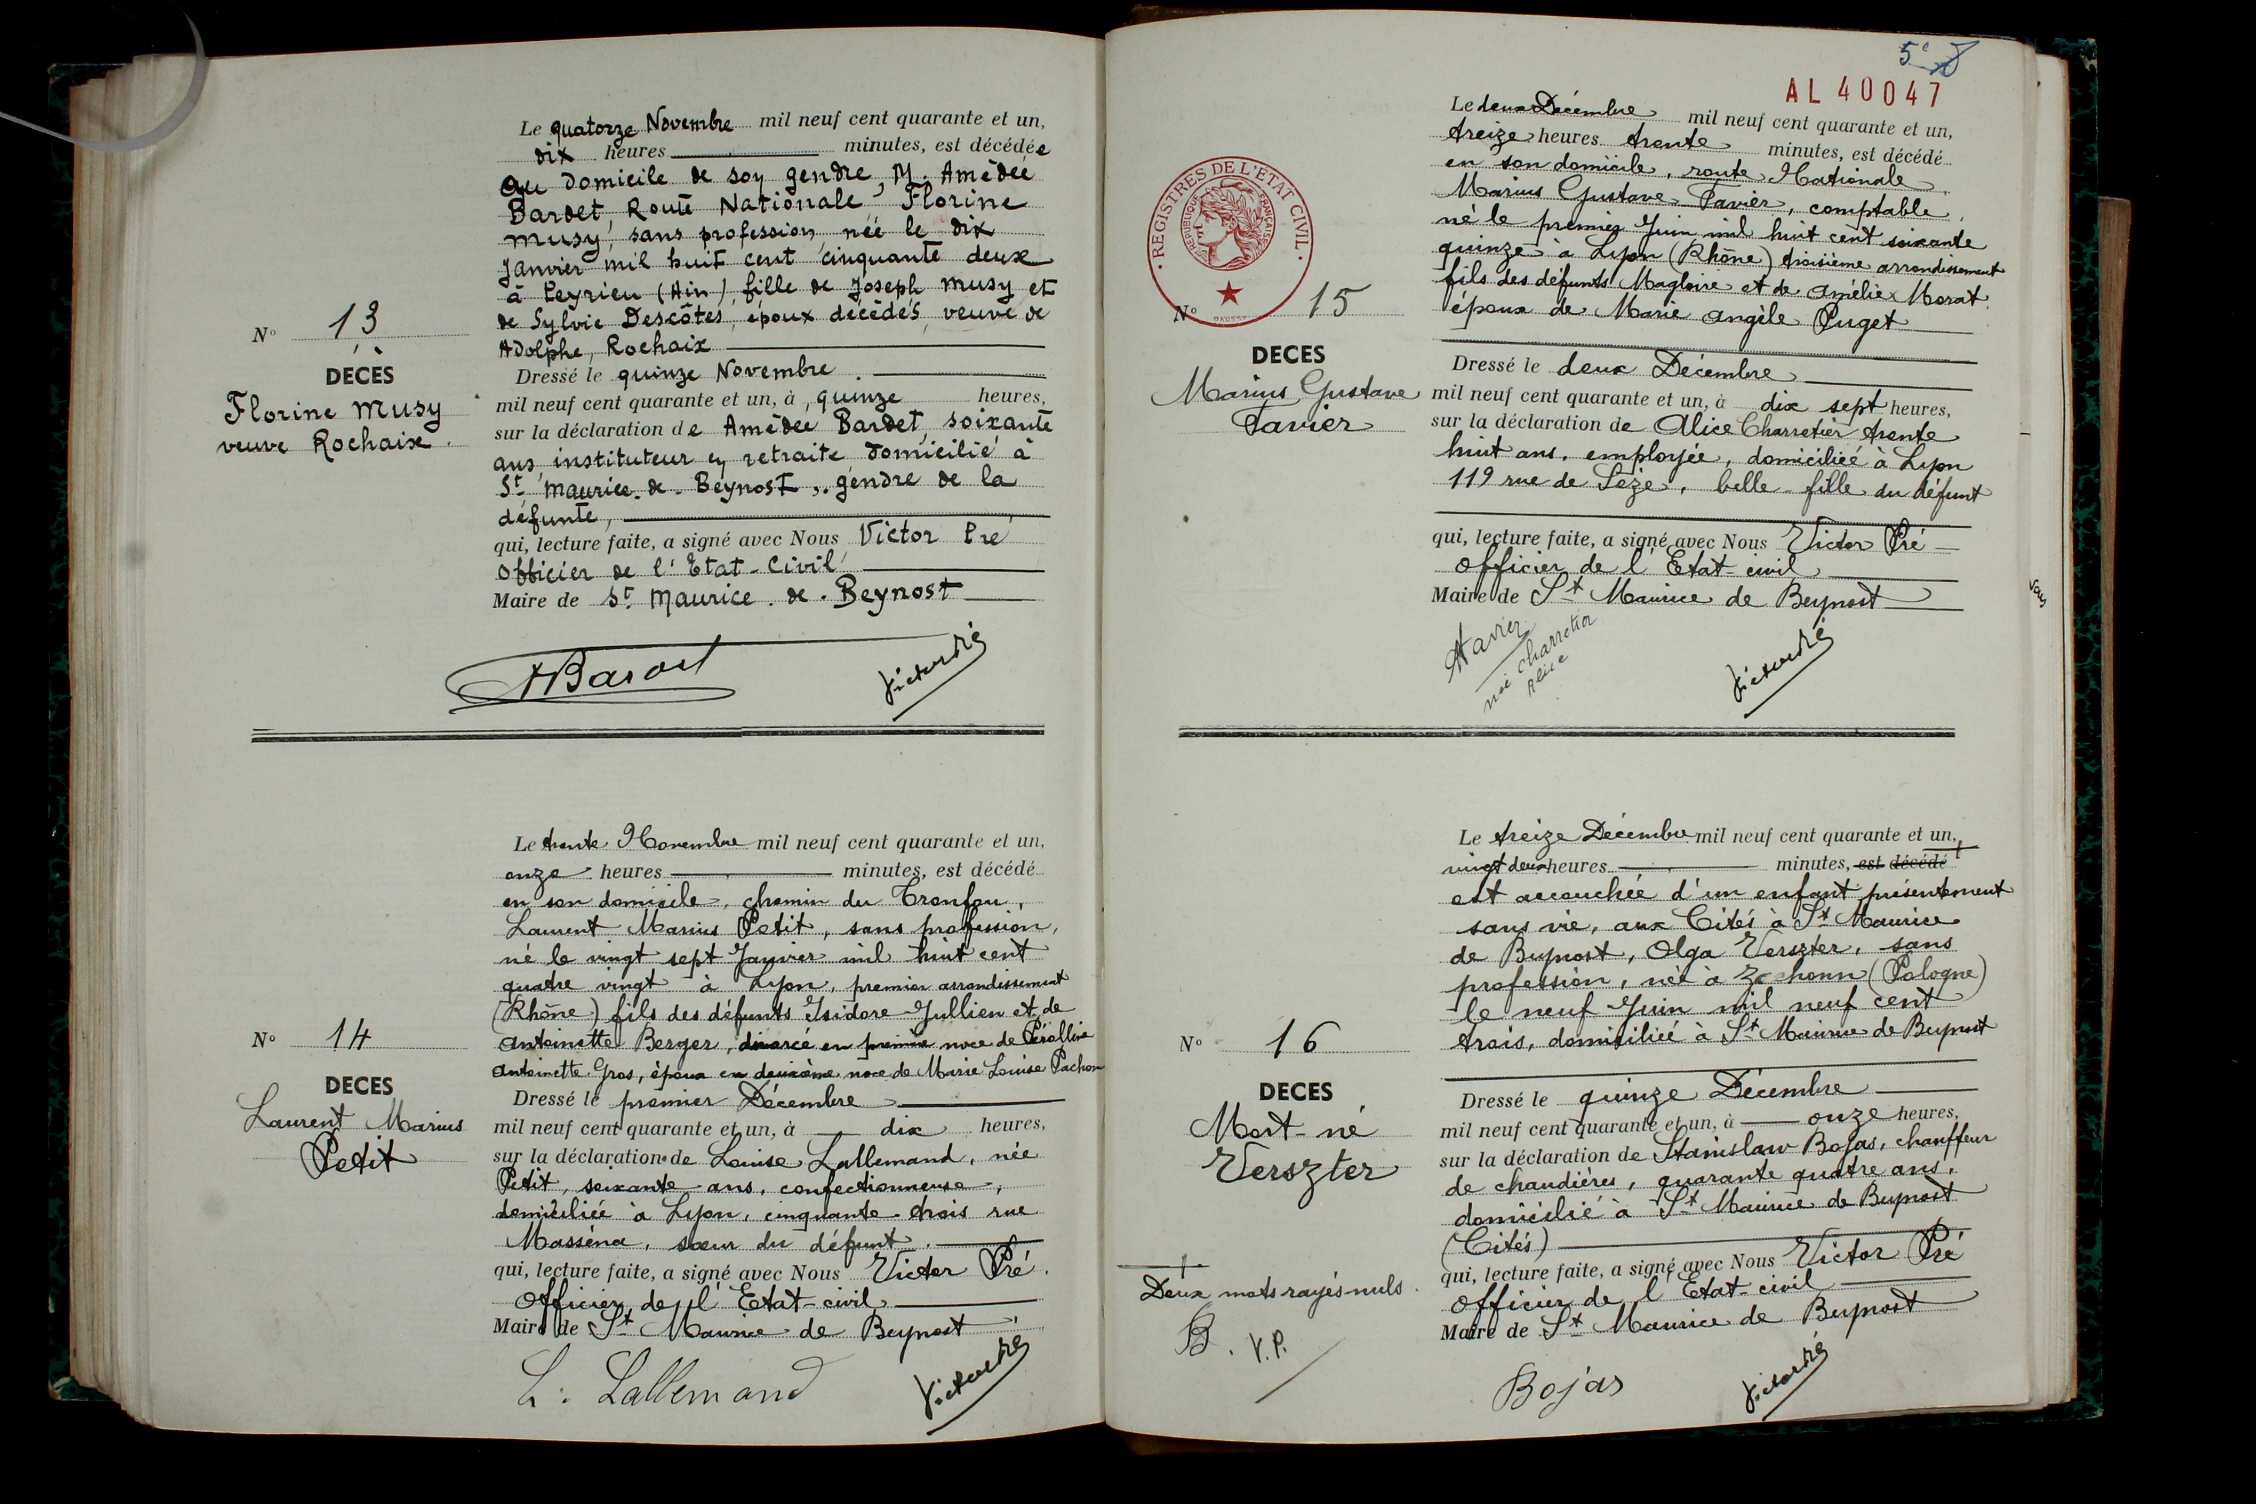 Le quatorze Novembre mil neuf cent quarante et un,
dix heures minutes, est décédée
au domicile de son gendre, M. Amédée
Bardet, Route Nationale, Florine
Musy, sans profession, née le dix
Janvier mil huit cent cinquante deux
à Peyrieu (Ain), fille de Joseph Musy et
de Sylvie Descôtes, époux décédés, veuve de
Adolphe, Rochaix
Nº 13
DÉCÈS
Florine Musy
veuve Rochaix.
Dressé le quinze Novembre.
mil neuf cent quarante et un, à quinze heures,
sur la déclaration de Amédée Bardet, soixante
ans, instituteur en retraite domicilié à
St Maurice-de-Beynost, gendre de la
défunte,
qui, lecture faite, a signé avec Nous Victor Pré
Officier de l'Etat-Civil
Maire de St Maurice-de-Beynost
ABardet
Victor Pré
Le trente Novembre mil neuf cent quarante et un,
onze heures minutes, est décédé
en son domicile, chemin du Tronfou,
Laurent Marius Petit, sans profession,
né le vingt sept Janvier mil huit cent
quatre vingt à Lyon, premier arrondissement
(Rhône) fils des défunts Isidore Jullien et de
Antoinette Berger, divorcé en première noce de Pérolline
Antoinette Gros, époux en deuxième noce de Marie Louise Pachon
Nº 14
DECES
Laurent Marius
Petit
Dressé le premier Décembre
mil neuf cent quarante et un, à dix heures,
sur la déclaration de Louise Lallemand, née
Petit, soixante ans, confectionneuse,
domiciliée à Lyon, cinquante trois rue
Masséna, sœur du défunt.
qui, lecture faite, a signé avec Nous Victor Pré.
Officier de l'Etat-civil
Maire de St Maurice de Beynost
L. Lallemand
Victor Pré
5e
AL 40047
Le deux Décembre mil neuf cent quarante et un,
treize heures trente minutes, est décédé
en son domicile, route Nationale,
Marius Gustave Tavier, comptable,
né le premier Juin mil huit cent soixante
quinze à Lyon (Rhône) troisième arrondissement
fils des défunts Magloire et de Amélie Morat
époux de Marie Angèle Puget
REGISTRES DE L'ETAT CIVIL
REPUBLIQUE FRANÇAISE
Nº 15
DECES
Marius Gustave
Tavier
Dressé le deux Décembre
mil neuf cent quarante et un, à dix sept heures,
sur la déclaration de Alice Charretier trente
huit ans, employée, domiciliée à Lyon
119 rue de Sèze, belle-fille du défunt
qui, lecture faite, a signé avec Nous Victor Pré
Officier de l'Etat-civil
Maire de St Maurice de Beynost
A Tavier
née Charretier
Alice
Victor Pré
Vous
Le treize Décembre mil neuf cent quarante et un,
vingt deux heures minutes, est décédé
est accouchée d'un enfant présentement
sans vie, aux Cités à St Maurice
de Beynost, Olga Verszter, sans
profession, née à (Pologne)
le neuf Juin mil neuf cent
trois, domiciliée à St Maurice de Beynost
Nº 16
DECES
Mort-né
Verszter
Dressé le quinze Décembre
mil neuf cent quarante et un, à onze heures,
sur la déclaration de Stanislaw Bojas, chauffeur
de chaudières, quarante quatre ans,
domicilié à St Maurice de Beynost
(Cités)
qui, lecture faite, a signé avec Nous Victor Pré
Officier de l'Etat-civil
Maire de St Maurice de Beynost
Deux mots rayés nuls.
B. V.P.
Bojas
Victor Pré